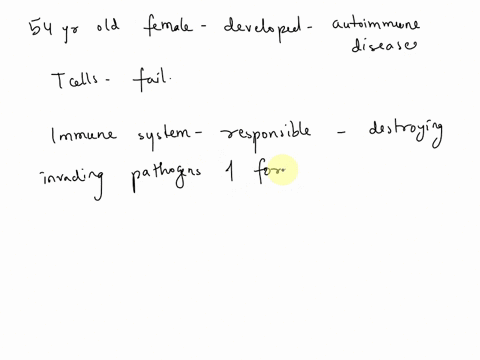 54 yr old female - developed - autoimmune
diseases
T cells - fail.
Immune system - responsible - destroying
invading pathogens & for